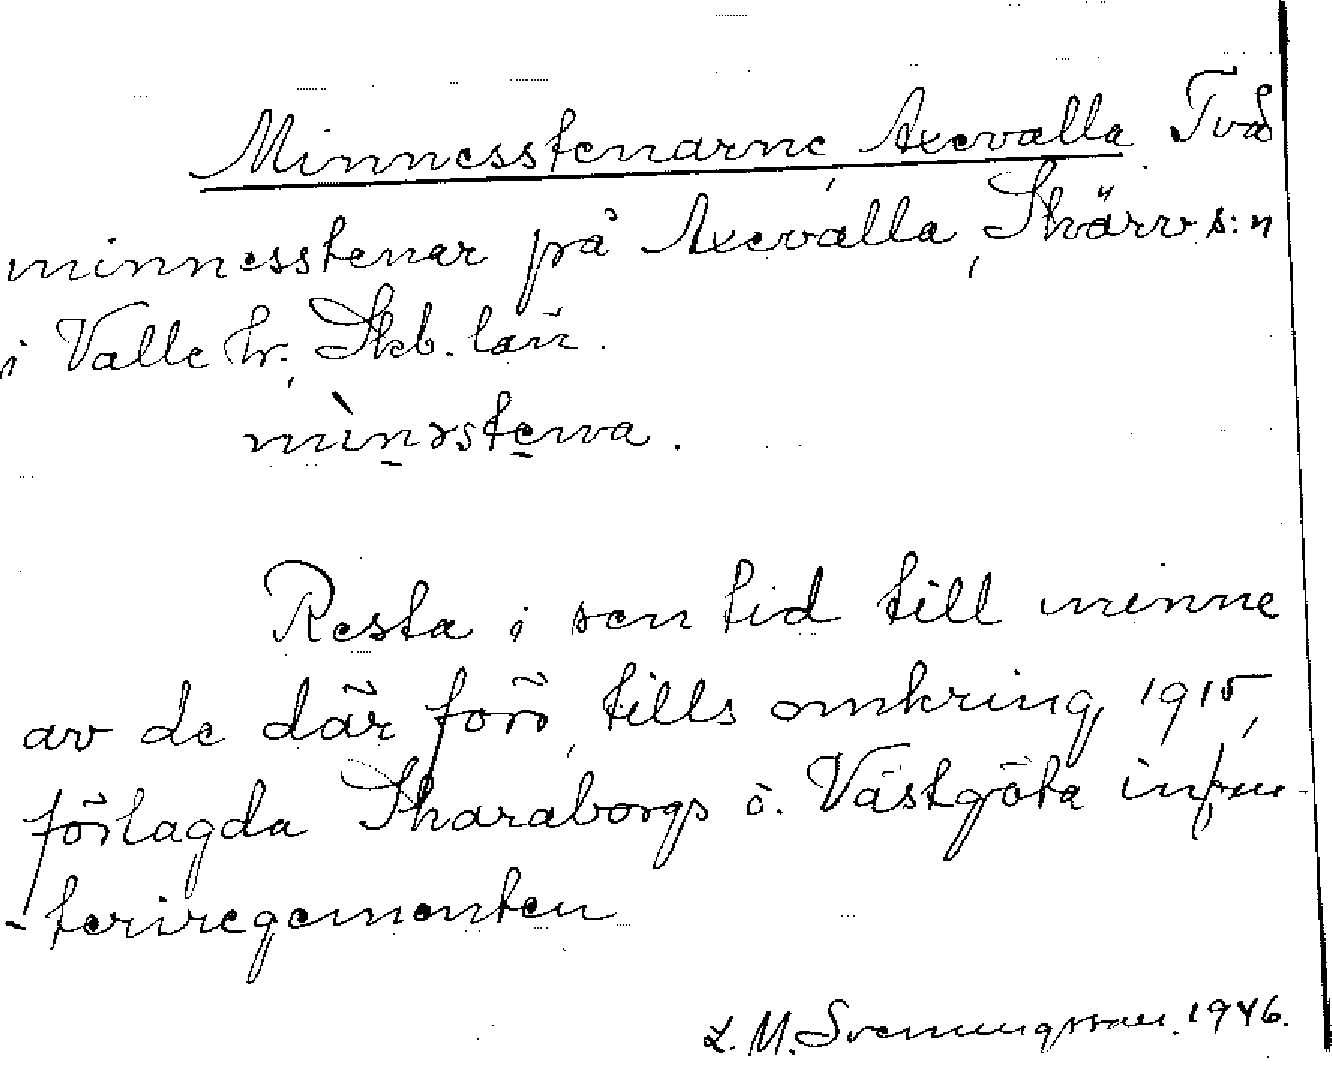 Minnesstenarne, Axevalla Två
minnesstenar på Axevalla, Skärv s:n
i Valle hr, Skb. län.
mìnəstęna.
Resta i sen tid till minne
av de där förr, tills omkring 1915,
förlagda Skaraborgs o. Västgöta infan-
-teriregementen
L. M. Svenungsson. 1946.